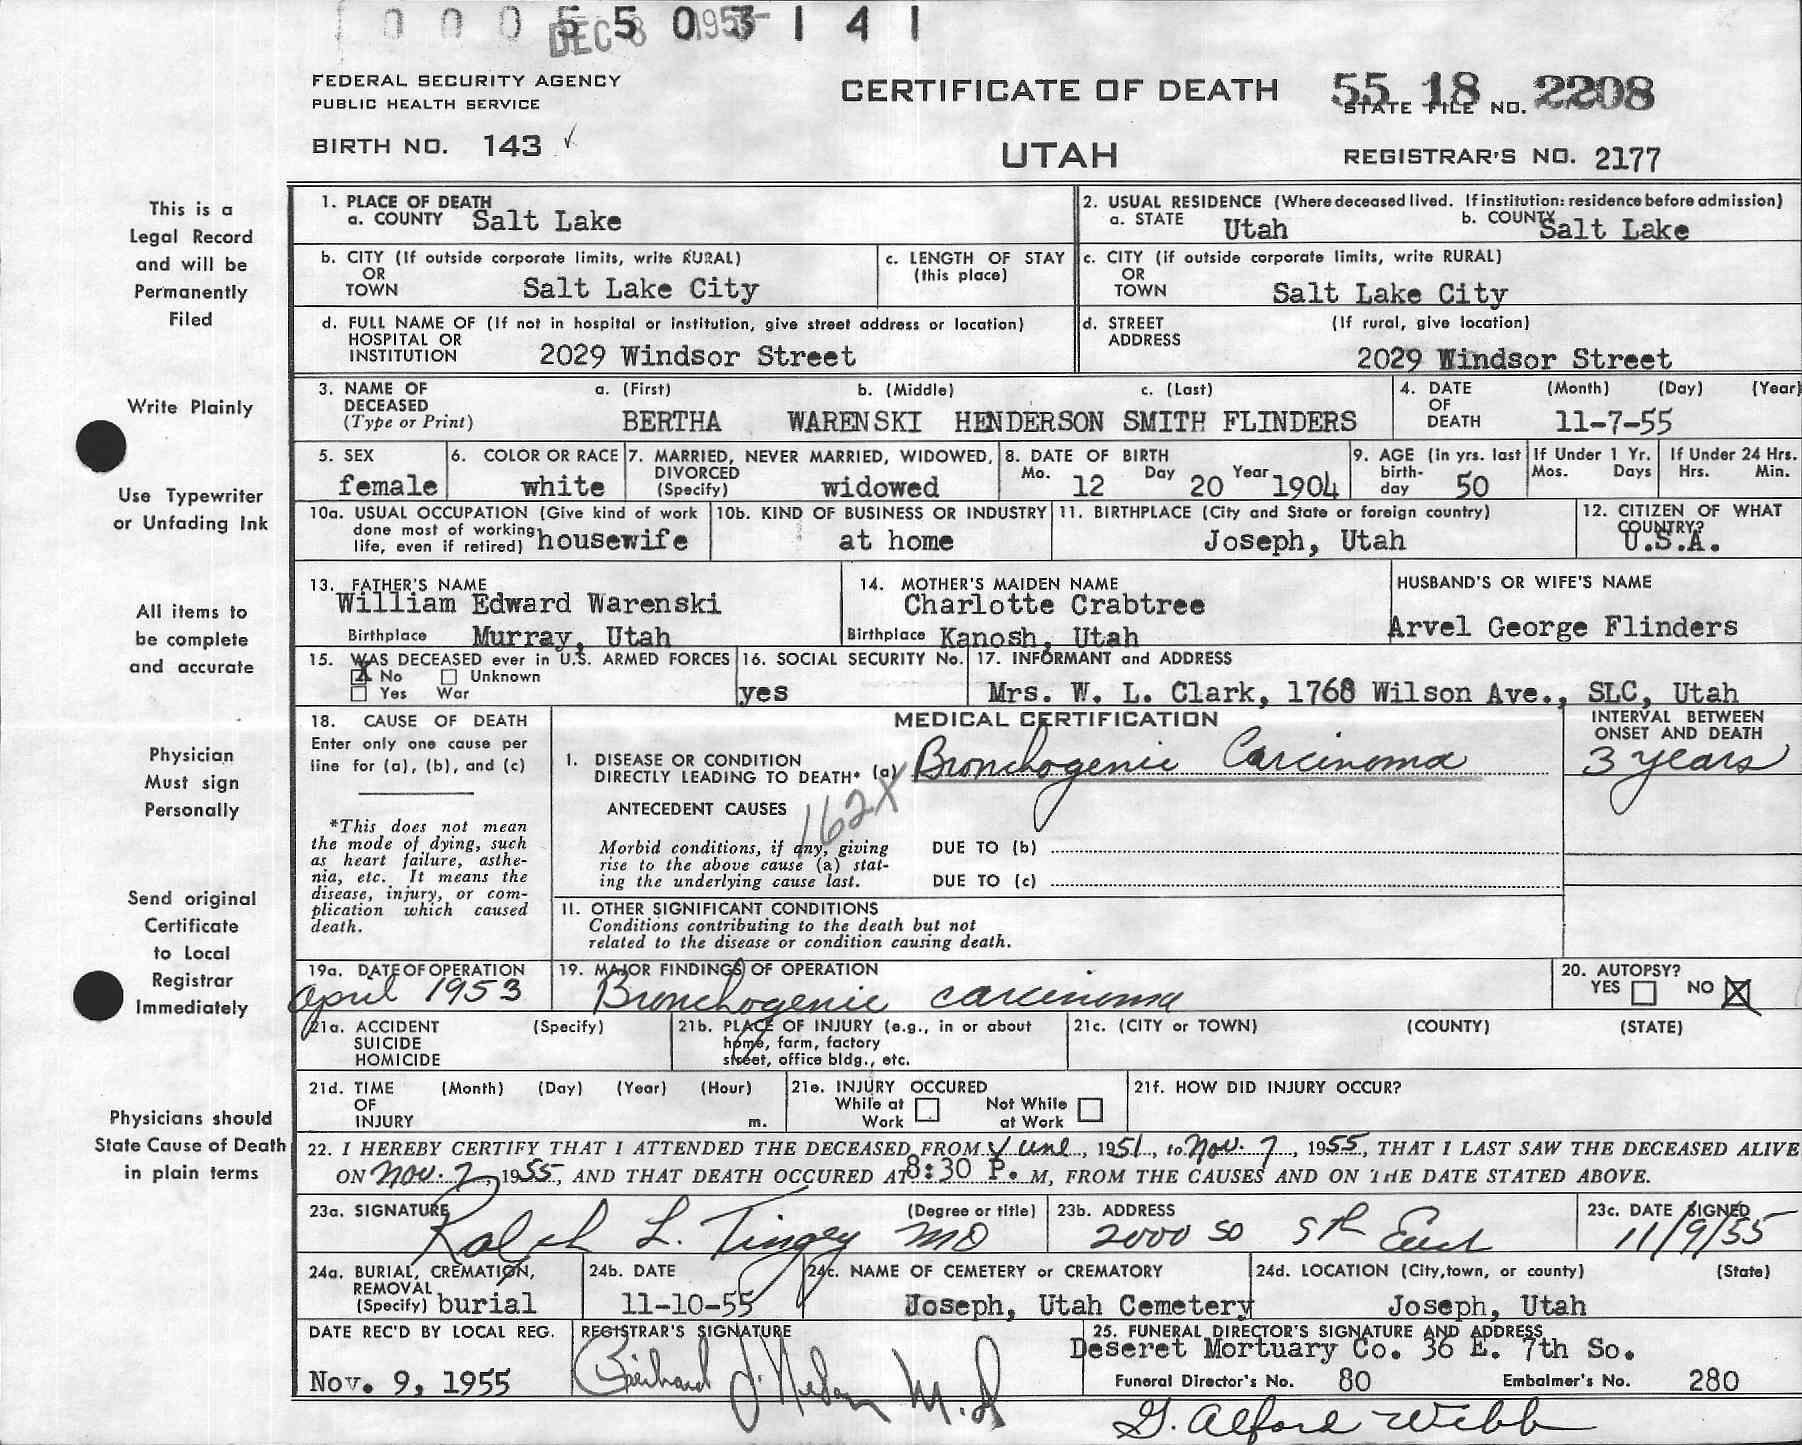 0 0 0 5 5 0 3 1 4 1
DEC 8 1955
FEDERAL SECURITY AGENCY
PUBLIC HEALTH SERVICE
BIRTH NO. 143 ✓
CERTIFICATE OF DEATH
UTAH
55 18 2208
STATE FILE NO.
REGISTRAR'S NO. 2177
This is a
Legal Record
and will be
Permanently
Filed
Write Plainly
Use Typewriter
or Unfading Ink
All items to
be complete
and accurate
Physician
Must sign
Personally
Send original
Certificate
to Local
Registrar
Immediately
Physicians should
State Cause of Death
in plain terms
1. PLACE OF DEATH
a. COUNTY Salt Lake
2. USUAL RESIDENCE (Where deceased lived. If institution: residence before admission)
a. STATE Utah b. COUNTY Salt Lake
b. CITY (If outside corporate limits, write RURAL)
OR
TOWN Salt Lake City
c. LENGTH OF STAY
(this place)
c. CITY (if outside corporate limits, write RURAL)
OR
TOWN Salt Lake City
d. FULL NAME OF (If not in hospital or institution, give street address or location)
HOSPITAL OR
INSTITUTION 2029 Windsor Street
d. STREET (If rural, give location)
ADDRESS
2029 Windsor Street
3. NAME OF a. (First) b. (Middle) c. (Last)
DECEASED
(Type or Print) BERTHA WARENSKI HENDERSON SMITH FLINDERS
4. DATE (Month) (Day) (Year)
OF
DEATH 11-7-55
5. SEX
female
6. COLOR OR RACE
white
7. MARRIED, NEVER MARRIED, WIDOWED,
DIVORCED
(Specify) widowed
8. DATE OF BIRTH
Mo. 12 Day 20 Year 1904
9. AGE (In yrs. last
birth-
day 50
If Under 1 Yr.
Mos. Days
If Under 24 Hrs.
Hrs. Min.
10a. USUAL OCCUPATION (Give kind of work
done most of working
life, even if retired) housewife
10b. KIND OF BUSINESS OR INDUSTRY
at home
11. BIRTHPLACE (City and State or foreign country)
Joseph, Utah
12. CITIZEN OF WHAT
COUNTRY?
U.S.A.
13. FATHER'S NAME
William Edward Warenski
Birthplace Murray, Utah
14. MOTHER'S MAIDEN NAME
Charlotte Crabtree
Birthplace Kanosh, Utah
HUSBAND'S OR WIFE'S NAME
Arvel George Flinders
15. WAS DECEASED ever in U.S. ARMED FORCES
X No Unknown
Yes War
16. SOCIAL SECURITY No.
yes
17. INFORMANT and ADDRESS
Mrs. W. L. Clark, 1768 Wilson Ave., SLC, Utah
18. CAUSE OF DEATH
Enter only one cause per
line for (a), (b), and (c)
*This does not mean
the mode of dying, such
as heart failure, asthe-
nia, etc. It means the
disease, injury, or com-
plication which caused
death.
MEDICAL CERTIFICATION
INTERVAL BETWEEN
ONSET AND DEATH
I. DISEASE OR CONDITION
DIRECTLY LEADING TO DEATH* (a) Bronchogenic Carcinoma 3 years
162X
ANTECEDENT CAUSES
Morbid conditions, if any, giving
rise to the above cause (a) stat-
ing the underlying cause last.
DUE TO (b)
DUE TO (c)
II. OTHER SIGNIFICANT CONDITIONS
Conditions contributing to the death but not
related to the disease or condition causing death.
19a. DATE OF OPERATION
April 1953
19. MAJOR FINDINGS OF OPERATION
Bronchogenic carcinoma
20. AUTOPSY?
YES NO X
21a. ACCIDENT (Specify)
SUICIDE
HOMICIDE
21b. PLACE OF INJURY (e.g., in or about
home, farm, factory
street, office bldg., etc.
21c. (CITY or TOWN) (COUNTY) (STATE)
21d. TIME (Month) (Day) (Year) (Hour)
OF
INJURY m.
21e. INJURY OCCURED
While at Not While
Work at Work
21f. HOW DID INJURY OCCUR?
22. I HEREBY CERTIFY THAT I ATTENDED THE DECEASED FROM June, 1951, to Nov. 7, 1955, THAT I LAST SAW THE DECEASED ALIVE
ON Nov. 7, 1955, AND THAT DEATH OCCURED AT 8:30 P. M, FROM THE CAUSES AND ON THE DATE STATED ABOVE.
23a. SIGNATURE (Degree or title)
Ralph L. Tingey MD
23b. ADDRESS
2000 So 9th East
23c. DATE SIGNED
11/9/55
24a. BURIAL, CREMATION,
REMOVAL
(Specify) burial
24b. DATE
11-10-55
24c. NAME OF CEMETERY or CREMATORY
Joseph, Utah Cemetery
24d. LOCATION (City, town, or county) (State)
Joseph, Utah
DATE REC'D BY LOCAL REG.
Nov. 9, 1955
REGISTRAR'S SIGNATURE
J. Nelson M.D
25. FUNERAL DIRECTOR'S SIGNATURE AND ADDRESS
Deseret Mortuary Co. 36 E. 7th So.
Funeral Director's No. 80 Embalmer's No. 280
G. Alford Webb